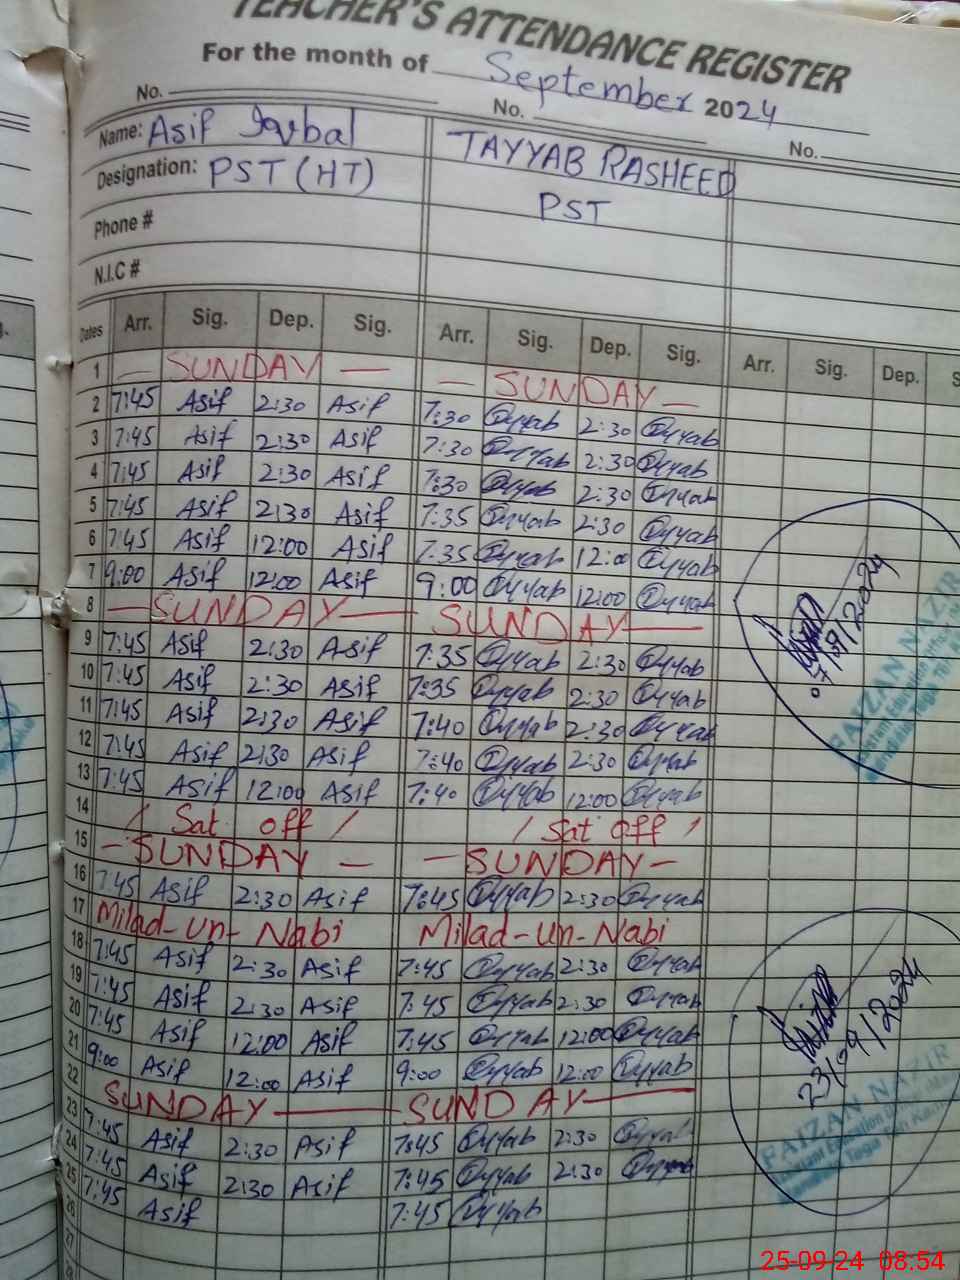 TEACHER'S ATTENDANCE REGISTER
For the month of September 2024
No. No. No.
Name: Asif Iqbal TAYYAB RASHEED
Designation: PST (HT) PST
Phone #
N.I.C #
Dates Arr. Sig. Dep. Sig. Arr. Sig. Dep. Sig. Arr. Sig. Dep. S
1 — SUNDAY — — SUNDAY —
2 7:45 Asif 2:30 Asif 7:30 Tayyab 2:30 Tayyab
3 7:45 Asif 2:30 Asif 7:30 Tayyab 2:30 Tayyab
4 7:45 Asif 2:30 Asif 7:30 Tayyab 2:30 Tayyab
5 7:45 Asif 2:30 Asif 7:35 Tayyab 2:30 Tayyab
6 7:45 Asif 12:00 Asif 7:35 Tayyab 12:00 Tayyab
7 9:00 Asif 12:00 Asif 9:00 Tayyab 12:00 Tayyab
8 — SUNDAY — SUNDAY —
9 7:45 Asif 2:30 Asif 7:35 Tayyab 2:30 Tayyab
10 7:45 Asif 2:30 Asif 7:35 Tayyab 2:30 Tayyab
11 7:45 Asif 2:30 Asif 7:40 Tayyab 2:30 Tayyab
12 7:45 Asif 2:30 Asif 7:40 Tayyab 2:30 Tayyab
13 7:45 Asif 12:00 Asif 7:40 Tayyab 12:00 Tayyab
14 / Sat off / / Sat off /
15 — SUNDAY — — SUNDAY —
16 7:45 Asif 2:30 Asif 7:45 Tayyab 2:30 Tayyab
17 Milad-un-Nabi Milad-un-Nabi
18 7:45 Asif 2:30 Asif 7:45 Tayyab 2:30 Tayyab
19 7:45 Asif 2:30 Asif 7:45 Tayyab 2:30 Tayyab
20 7:45 Asif 12:00 Asif 7:45 Tayyab 12:00 Tayyab
21 9:00 Asif 12:00 Asif 9:00 Tayyab 12:00 Tayyab
22 SUNDAY — SUNDAY —
23 7:45 Asif 2:30 Asif 7:45 Tayyab 2:30 Tayyab
24 7:45 Asif 2:30 Asif 7:45 Tayyab 2:30 Tayyab
25 7:45 Asif 7:45 Tayyab
26
27
28
07/09/2024
FAIZAN NAZIR
Assistant Education Officer
23/09/2024
FAIZAN NAZIR
Assistant Education Officer
25-09-24 08:54